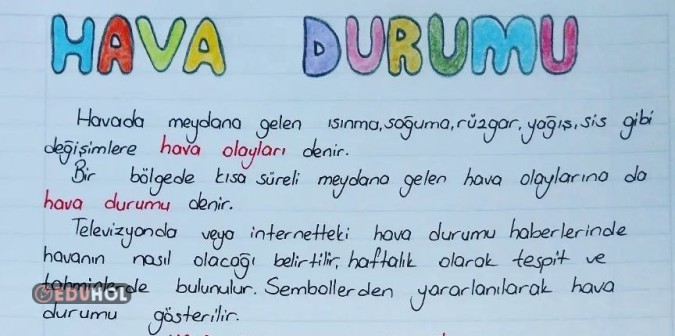 HAVA DURUMU
Havada meydana gelen ısınma, soğuma, rüzgar, yağış, sis gibi
değişimlere hava olayları denir.
Bir bölgede kısa süreli meydana gelen hava olaylarına da
hava durumu denir.
Televizyonda veya internetteki hava durumu haberlerinde
havanın nasıl olacağı belirtilir, haftalık olarak tespit ve
bulunulur. Sembollerden yararlanılarak hava
EDUHOL
durumu gösterilir.